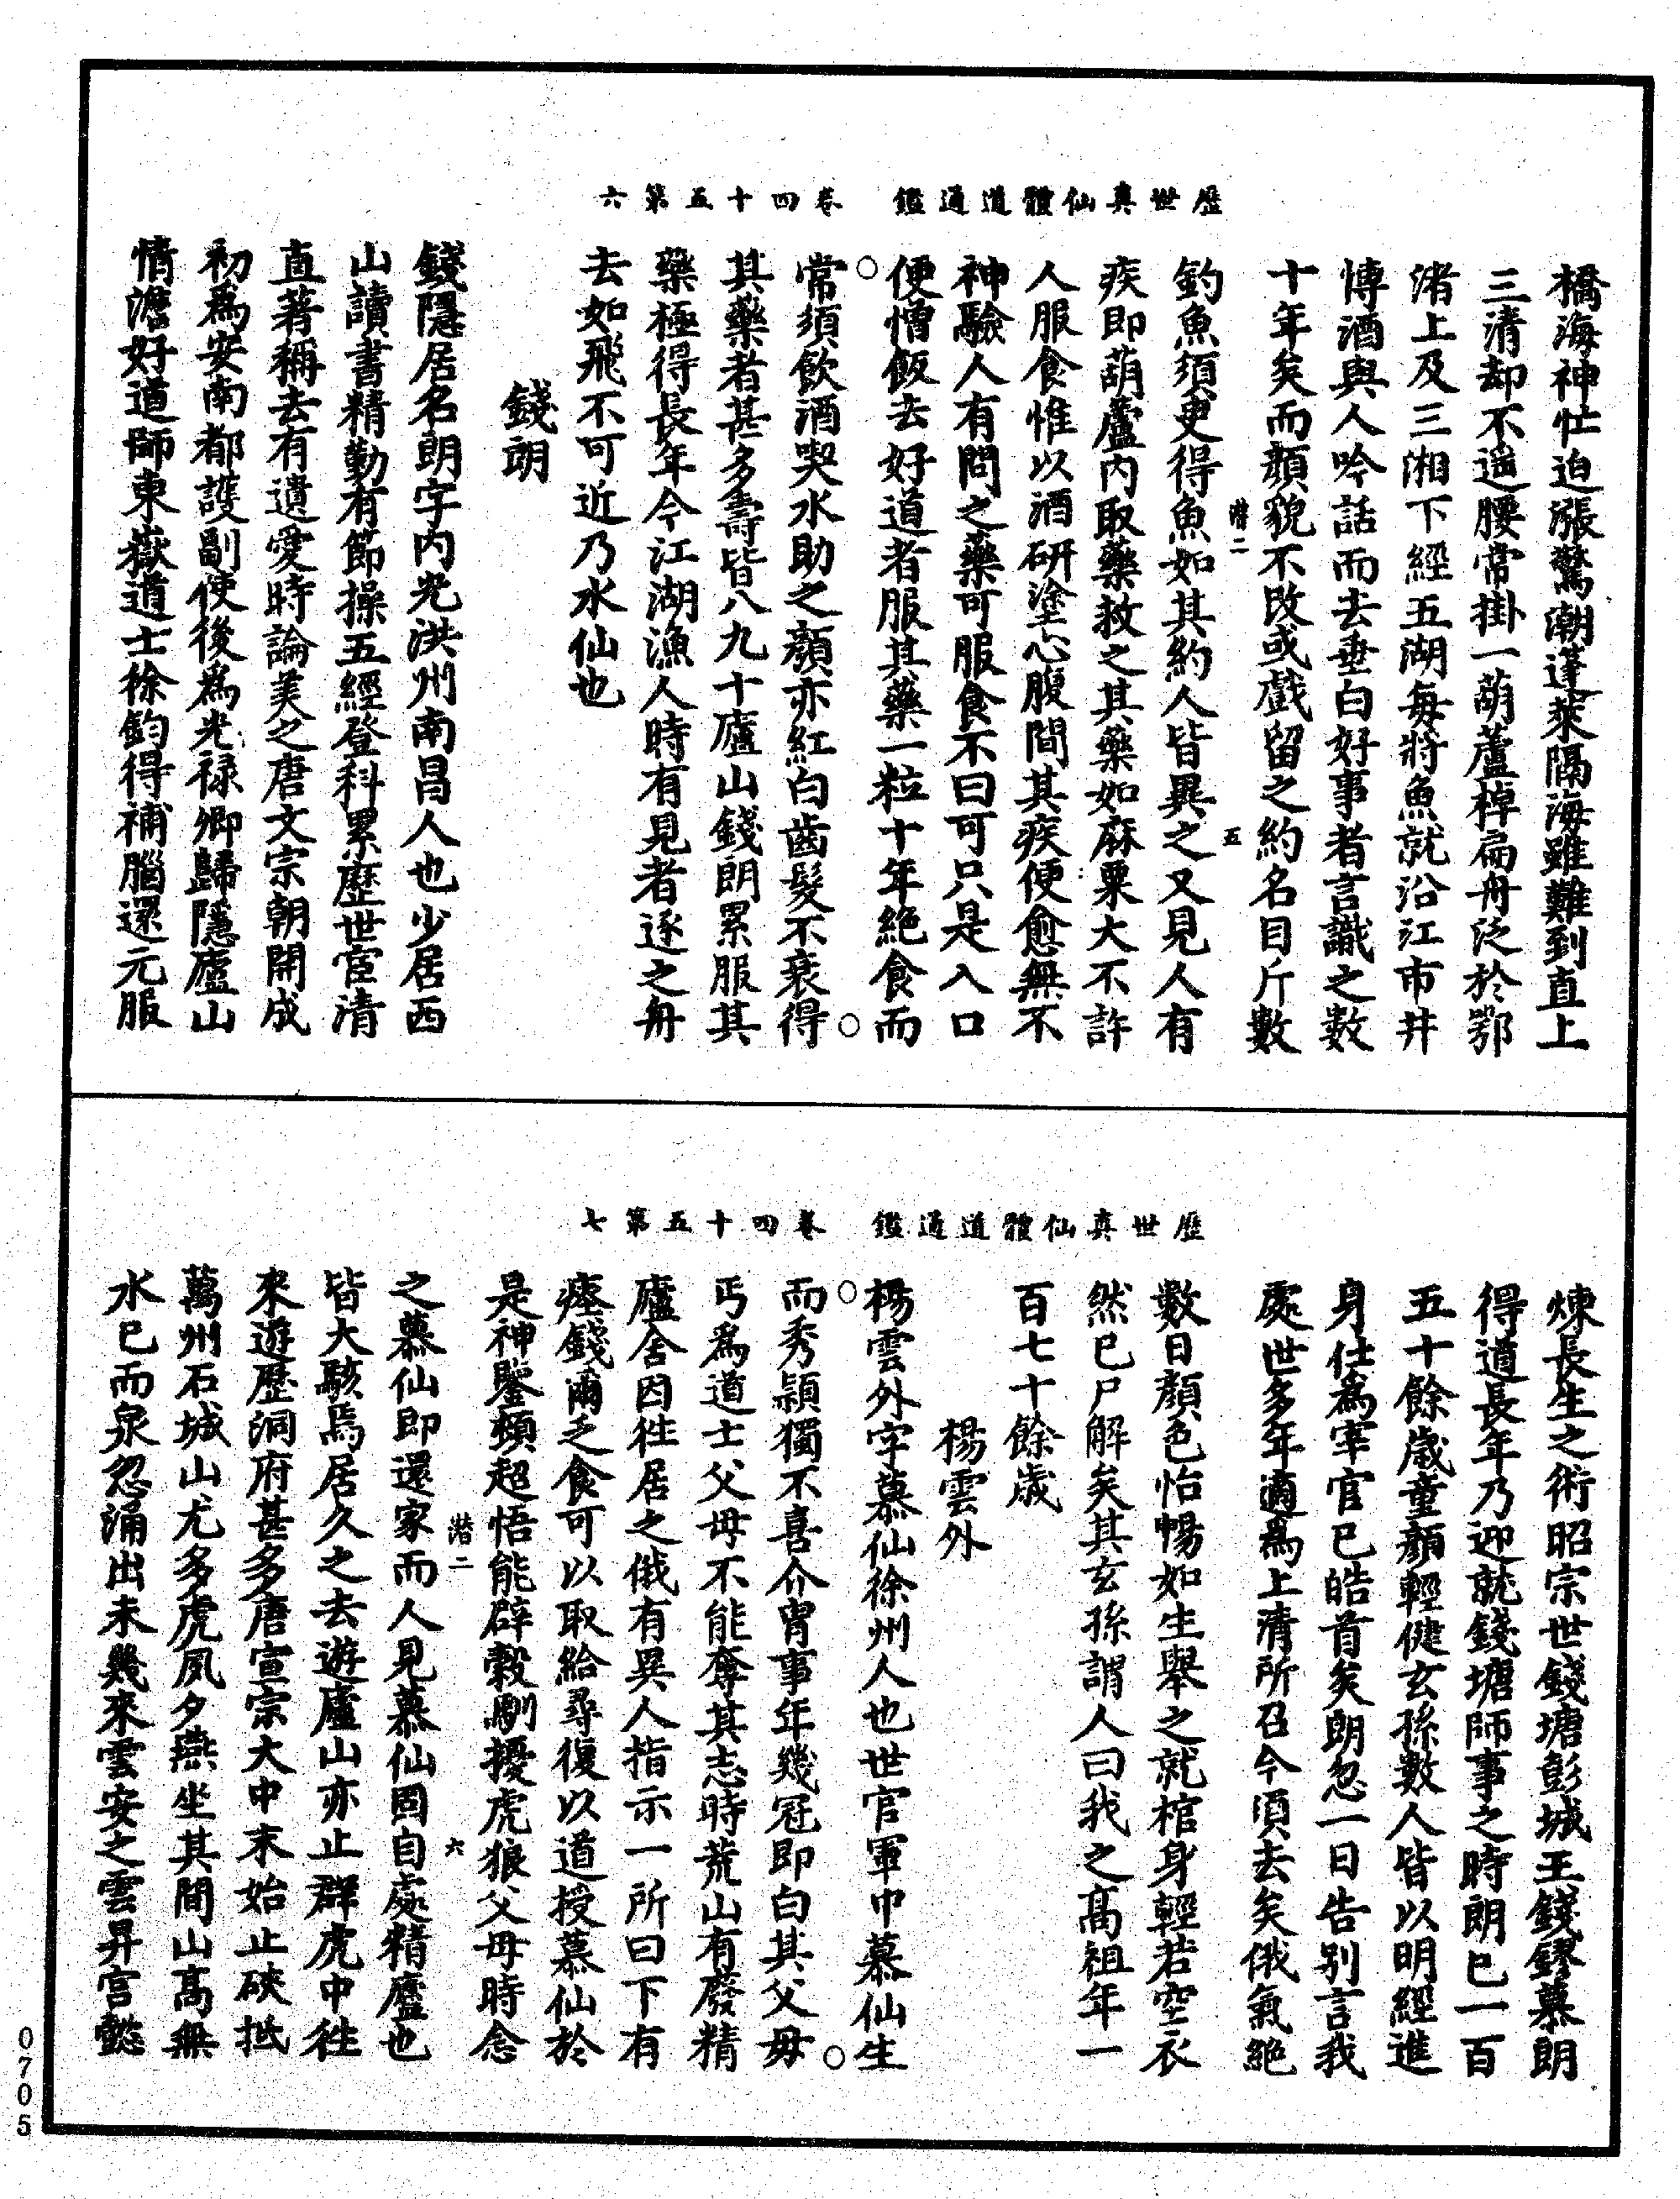 歷世真仙體道通鑑　卷四十五第六
橋海神忙迫漲驚潮蓬萊隔海雖難到直上
三清却不遥腰常掛一葫蘆棹扁舟泛於鄂
渚上及三湘下經五湖每將魚就沿江市井
博酒與人吟話而去垂白好事者言識之數
十年矣而顏貌不改或戲留之約名目斤數
潜二　五
釣魚須臾得魚如其約人皆異之又見人有
疾即葫蘆内取藥救之其藥如麻粟大不許
人服食惟以酒研塗心腹間其疾便愈無不
神驗人有問之藥可服食不曰可只是入口
便憎飯去好道者服其藥一粒十年絶食而
常須飲酒喫水助之顏亦紅白齒髮不衰得
其藥者甚多壽皆八九十廬山錢朗累服其
藥極得長年今江湖漁人時有見者逐之舟
去如飛不可近乃水仙也
錢朗
錢隱居名朗字内光洪州南昌人也少居西
山讀書精勤有節操五經登科累歷世宦清
直著稱去有遺愛時論美之唐文宗朝開成
初爲安南都護副使後爲光禄卿歸隱廬山
情澹好道師東嶽道士徐鈞得補腦還元服
歷世真仙體道通鑑　卷四十五第七
煉長生之術昭宗世錢塘彭城王錢鏐慕朗
得道長年乃迎就錢塘師事之時朗已一百
五十餘歲童顏輕健玄孫數人皆以明經進
身仕爲宰官已皓首矣朗忽一日告别言我
處世多年適爲上清所召今須去矣俄氣絶
數日顏色怡暢如生舉之就棺身輕若空衣
然已尸解矣其玄孫謂人曰我之高祖年一
百七十餘歲
楊雲外
楊雲外字慕仙徐州人也世官軍中慕仙生
而秀穎獨不喜介胄事年幾冠即白其父母
丐爲道士父母不能奪其志時荒山有廢精
廬舍因往居之俄有異人指示一所曰下有
瘞錢爾乏食可以取給尋復以道授慕仙於
是神鑒頓超悟能辟穀馴擾虎狼父母時念
潜二　六
之慕仙即還家而人見慕仙固自處精廬也
皆大駭焉居久之去遊廬山亦止群虎中往
來遊歷洞府甚多唐宣宗大中末始止硤抵
萬州石城山尤多虎夙夕燕坐其間山高無
水已而泉忽涌出未幾來雲安之雲昇宫懿
0705